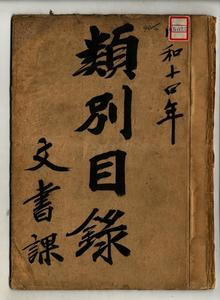 昭和十四年
類別目錄
文書課